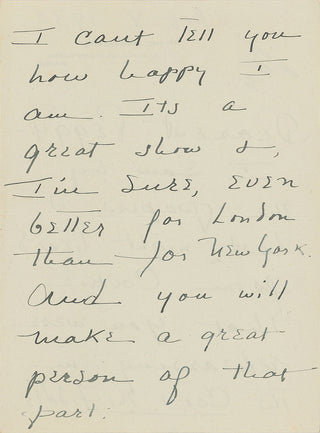 I cant Tell you
how happy I
am. Its a
great show &,
I'm sure, even
better for London
than for New York.
And you will
make a great
person of that
part.